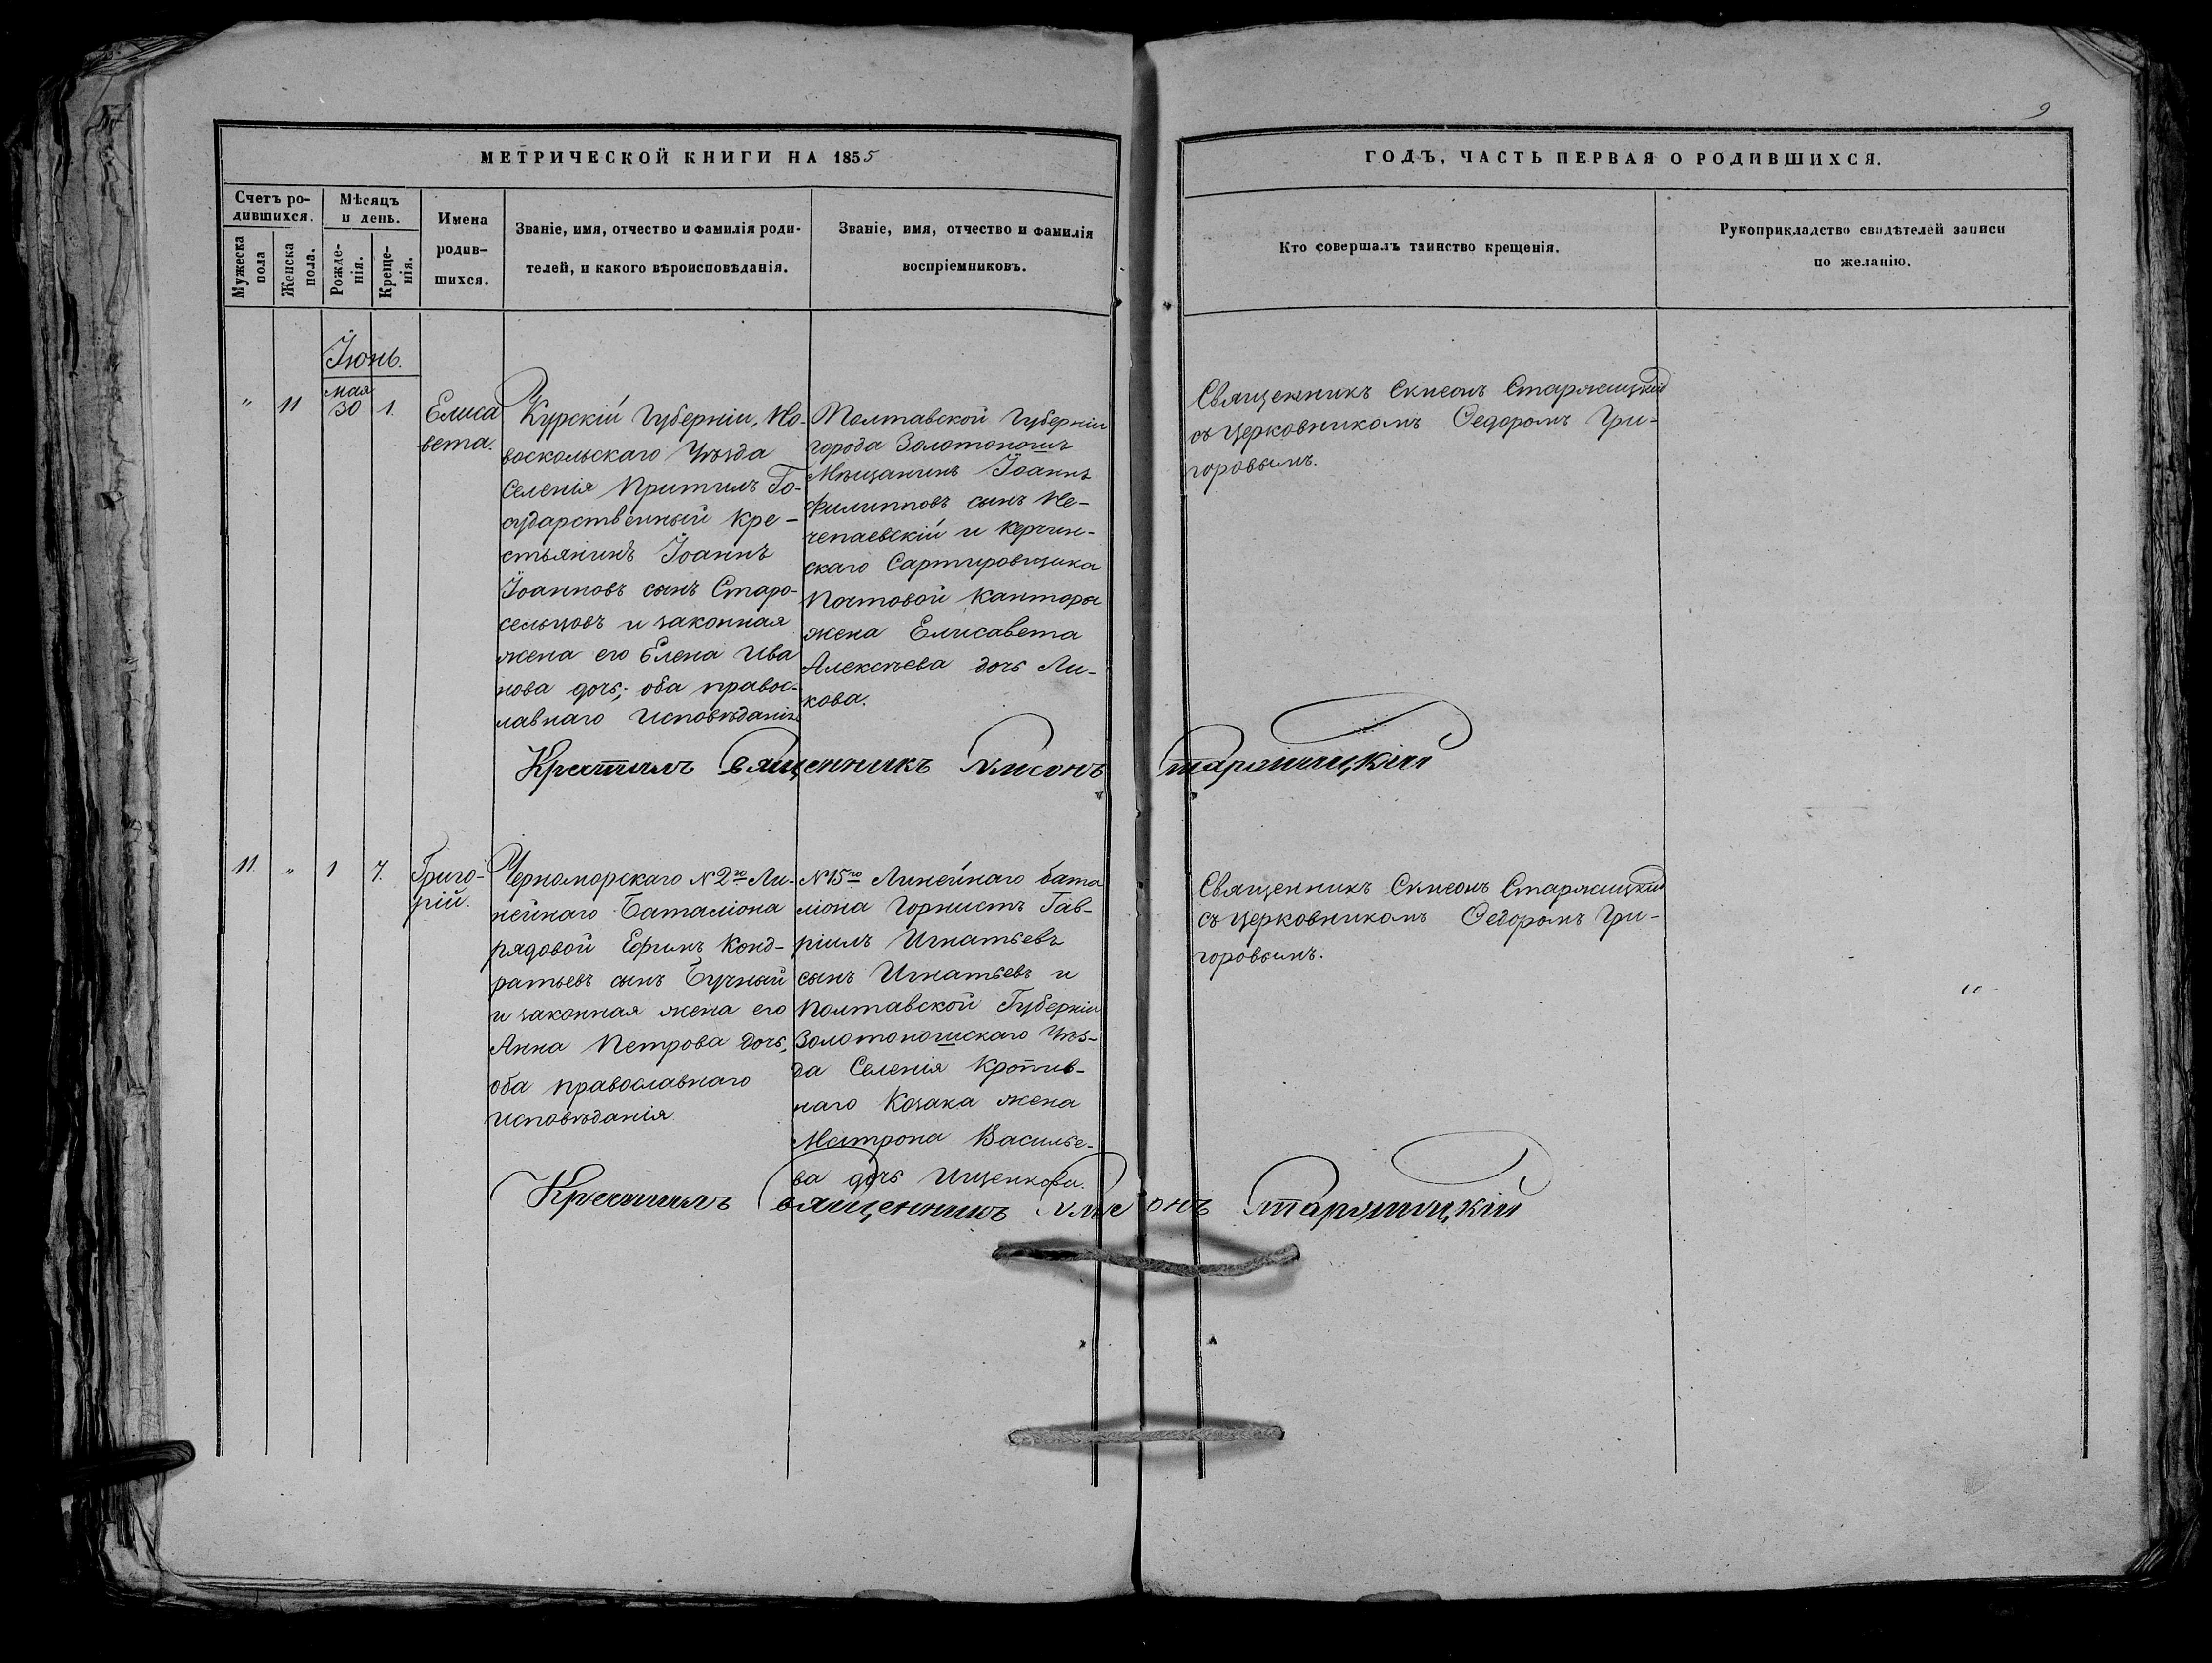 9
МЕТРИЧЕСКОЙ КНИГИ НА 1855
ГОДЪ, ЧАСТЬ ПЕРВАЯ О РОДИВШИХСЯ.
Счетъ ро-
дившихся.
Мужеска
пола
Женска
пола.
Мѣсяцъ
и день.
Рожде-
нія.
Креще-
нія.
Имена
родив-
шихся.
Званіе, имя, отчество и фамилія роди-
телей, и какого вѣроисповѣданія.
Званіе, имя, отчество и фамилія
воспріемниковъ.
Кто совершалъ таинство крещенія.
Рукоприкладство свидѣтелей записи
по желанію.
Іюнь.
"
11
мая
30
1.
Елиса
вета.
Курскій Губерніи, Но-
воскольскаго Уѣзда
Селенія Притилъ Го-
сударственный Кре-
стьянинъ Іоаннъ
Іоанновъ сынъ Старо-
сельцовъ и законная
жена его Елена Ива
нова дочь; оба правос-
лавнаго исповѣданія
Полтавской Губерніи
города Золотоношъ
Мѣщанинъ Іоаннъ
Филипповъ сынъ Не-
чепаевскій и Керчин-
скаго Сартировщика
Почтовой Канторы
жена Елисавета
Алексѣева дочь Ли-
кова.
Священникъ Симеонъ Старжицкій
съ Церковникомъ Ѳедоромъ Гри-
горовымъ.
Крестилъ Священникъ Симеонъ Старжицкій
11.
"
1
7.
Григо-
рій.
Черноморскаго N 2го Ли-
нейнаго Баталіона
рядовой Ефимъ Конд-
ратьевъ сынъ Бучный
и законная жена его
Анна Петрова дочь,
оба православнаго
исповѣданія
N 15го Линейнаго бата
ліона Горнистъ Гав-
ріилъ Игнатьевъ
сынъ Игнатьевъ и
Полтавской Губерніи
Золотоношскаго Уѣз-
да Селенія Кропив-
наго Козака жена
Матрона Василье-
ва дочь Ищенкова.
Священникъ Симеонъ Старжицкій
съ Церковникомъ Ѳедоромъ Гри-
горовымъ.
"
Крестилъ Священникъ Симеонъ Старжицкій